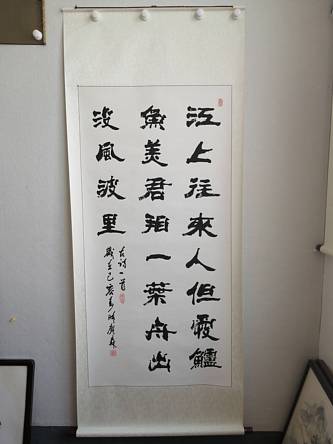 江上往來人但愛鱸
魚美君看一葉舟出
沒風波里
古诗一首
歲在己亥